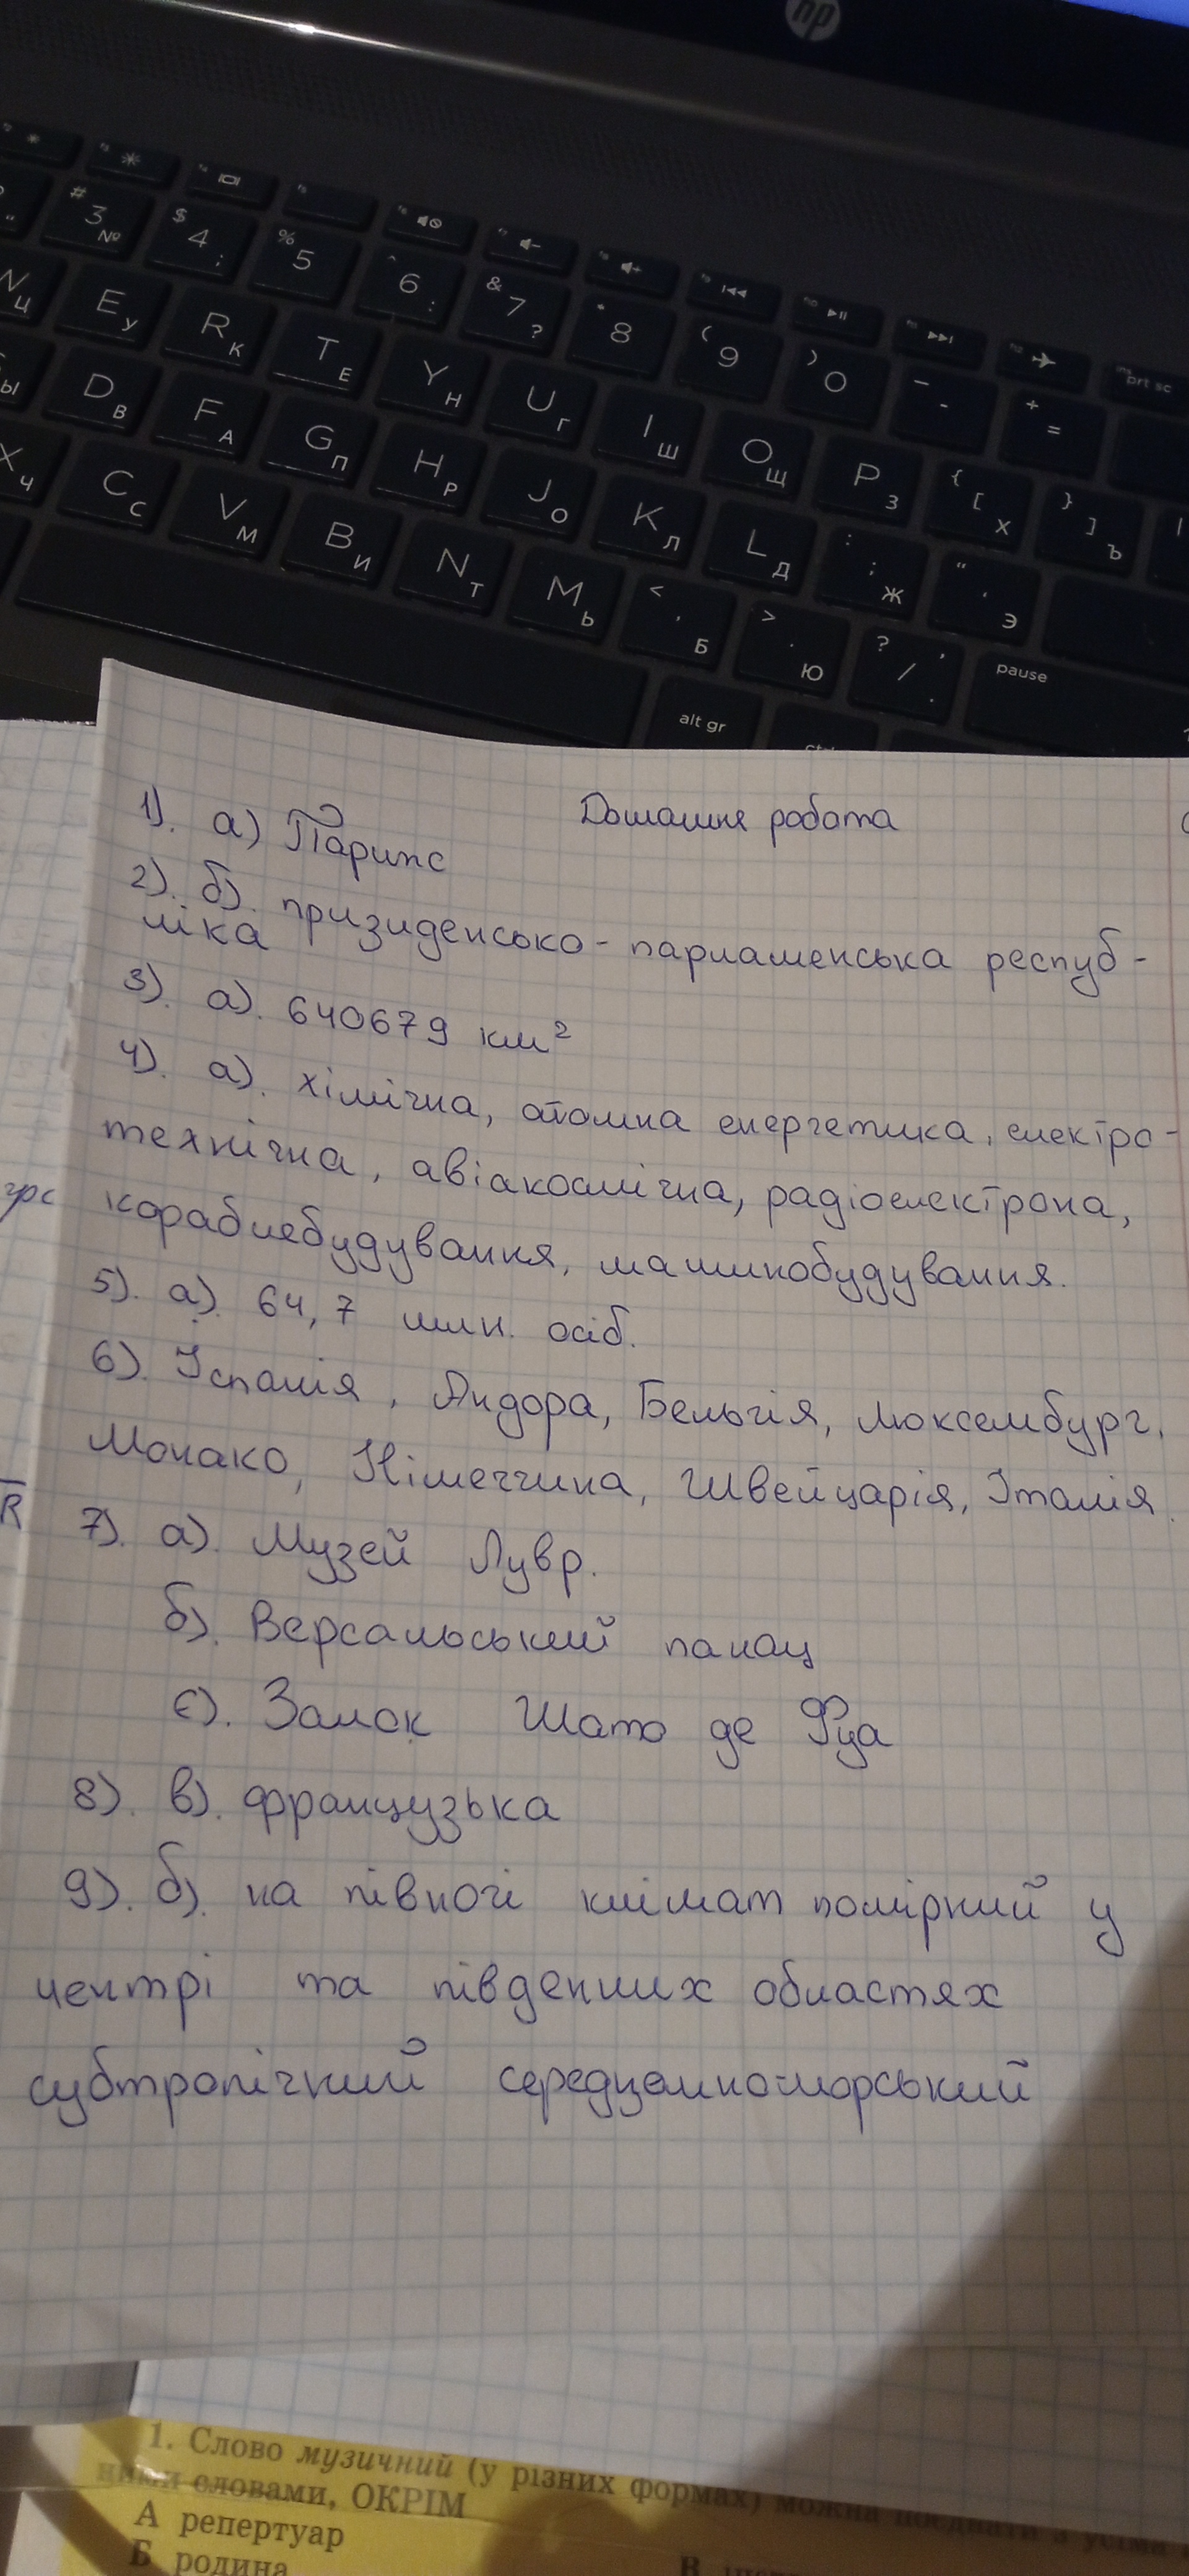 hp
# 3 №
$ 4 ;
% 5
^ 6 :
& 7 ?
* 8
( 9
) 0
_ -
+ =
prt sc
N Ц
E У
R К
T Е
Y Н
U Г
I Ш
O Щ
P З
{ [ Х
} ] Ъ
Ы
D В
F А
G П
H Р
J О
K Л
L Д
: ; Ж
“ ' Э
X Ч
C С
V М
B И
N Т
M Ь
< , Б
> . Ю
? / , .
pause
alt gr
Домашня робота
1). а) Париж
2). б). призиденсько-парламенська респуб-
ліка
3). а). 640679 км²
4). а). хімічна, атомна енергетика, електро-
технічна, авіакосмічна, радіоелектрона,
кораблебудування, машинобудування.
5). а). 64,7 млн. осіб.
6). Іспанія, Андора, Бельгія, Люксембург,
Монако, Німеччина, Швейцарія, Італія.
7). а). Музей Лувр.
б). Версальський палац
є). Замок Шато де Фуа
8). в). французька
9). б). на півночі клімат помірний у
центрі та південних областях
субтропічний середземноморський
1. Слово музичний (у різних формах) можна поєднати з усіма
ними словами, ОКРІМ
А репертуар
Б родина
В